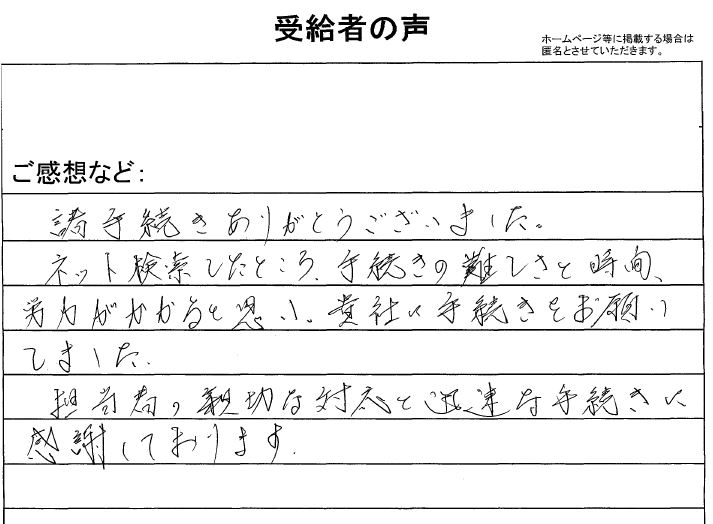 受給者の声
ホームページ等に掲載する場合は
匿名とさせていただきます。
ご感想など:
諸手続きありがとうございました。
ネット検索したところ、手続きの難しさと時間、
労力がかかると思い、貴社に手続きをお願い
しました。
担当者の親切な対応と迅速な手続きに
感謝しております。